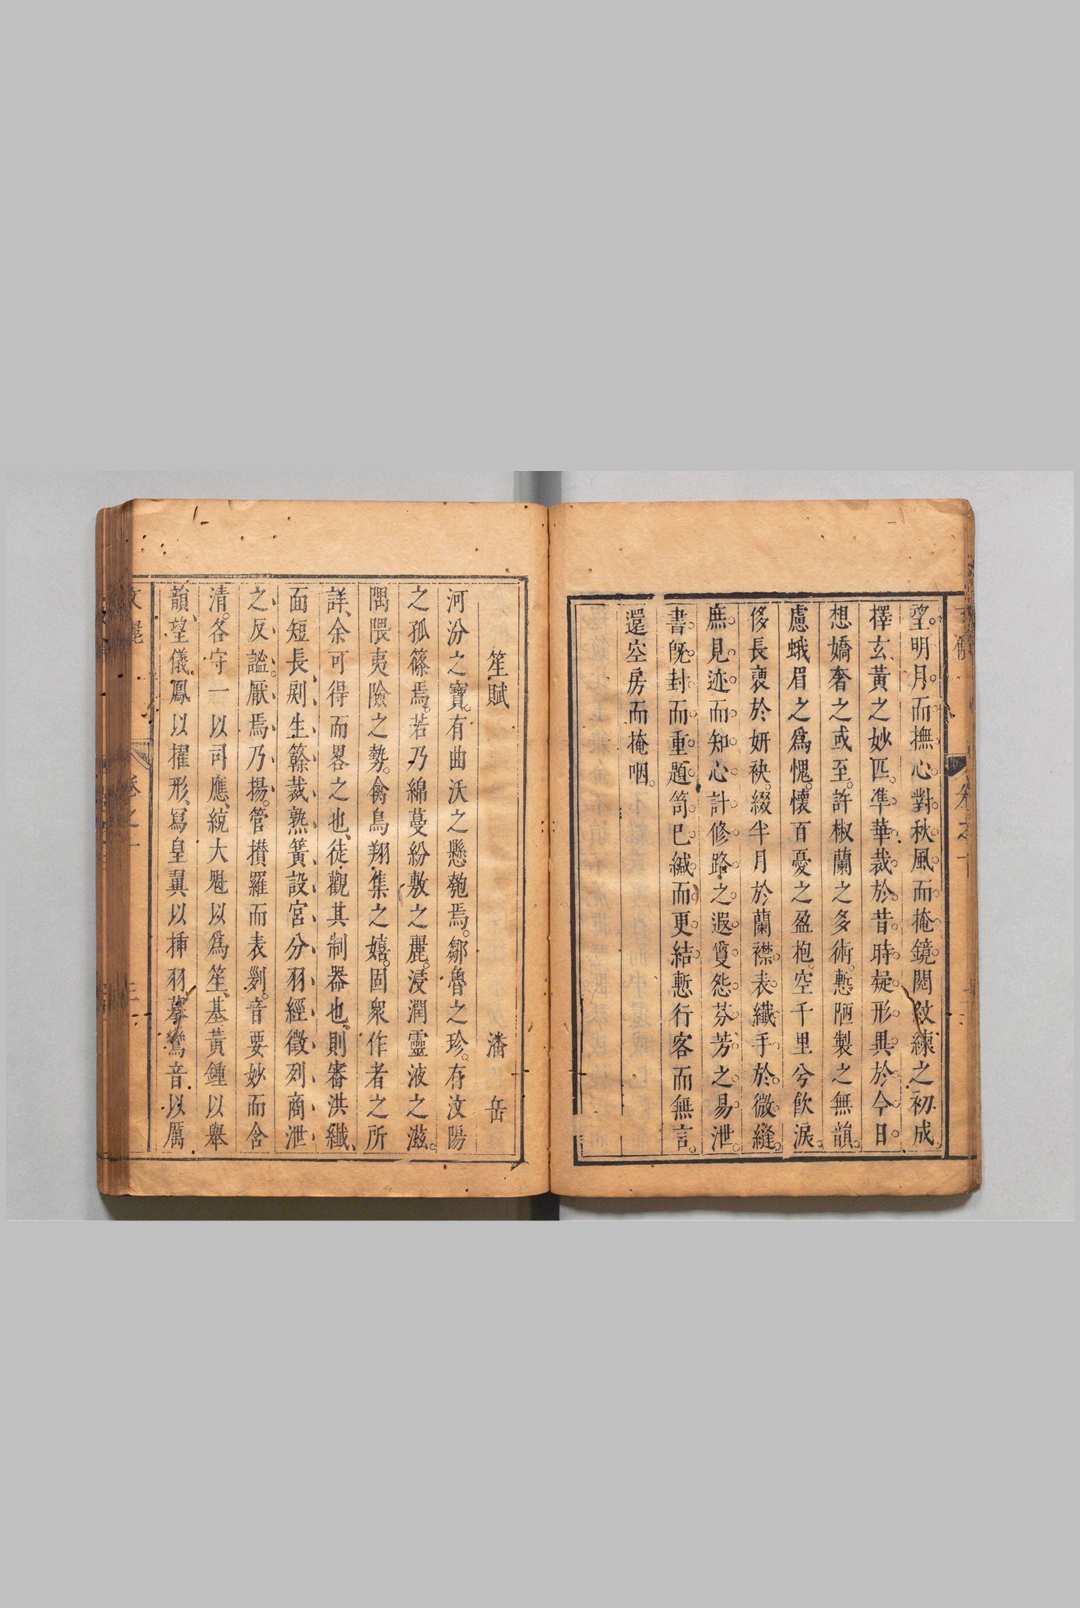 望明月而撫心對秋風而掩鏡閱紋練之初成
擇玄黃之妙匹準華裁於昔時疑形異於今日
想嬌奢之或至許椒蘭之多術慙陋製之無韻
慮蛾眉之爲愧懷百憂之盈抱空千里兮飲淚
侈長褏於妍袂綴半月於蘭襟表纖手於微縫
庶見迹而知心計修路之遐夐怨芬芳之易泄
書旣封而重題笥已緘而更結慙行客而無言
還空房而掩咽
笙賦 潘岳
河汾之寶有曲沃之懸匏焉鄒魯之珍有汶陽
之孤篠焉若乃綿蔓紛敷之麗浸潤靈液之滋
隅隈夷險之勢禽鳥翔集之嬉固衆作者之所
詳余可得而畧之也徒觀其制器也則審洪纖
面短長㓨生簳裁熟簧設宮分羽經徵列商泄
之反謐厭焉乃揚管攢羅而表列音要妙而含
清各守一以司應統大魁以爲笙基黃鍾以舉
韻望儀鳳以擢形寫皇翼以插羽摹鸞音以厲
卷之一